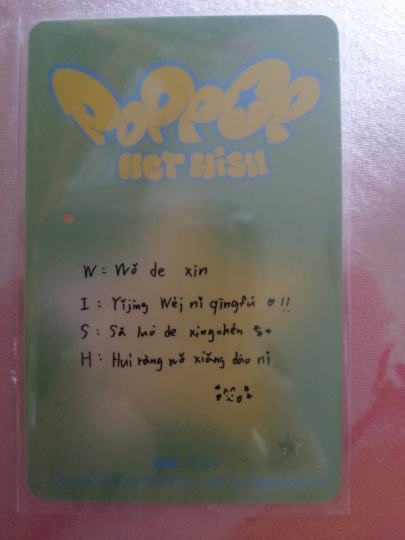 POPPOP
NCT WISH
W: Wǒ de xin
I: Yǐjing Wèi nǐ qīngfú !!
S: Sǎ luò de xingchén
H: Huì ràng wǒ xiǎng dào nǐ